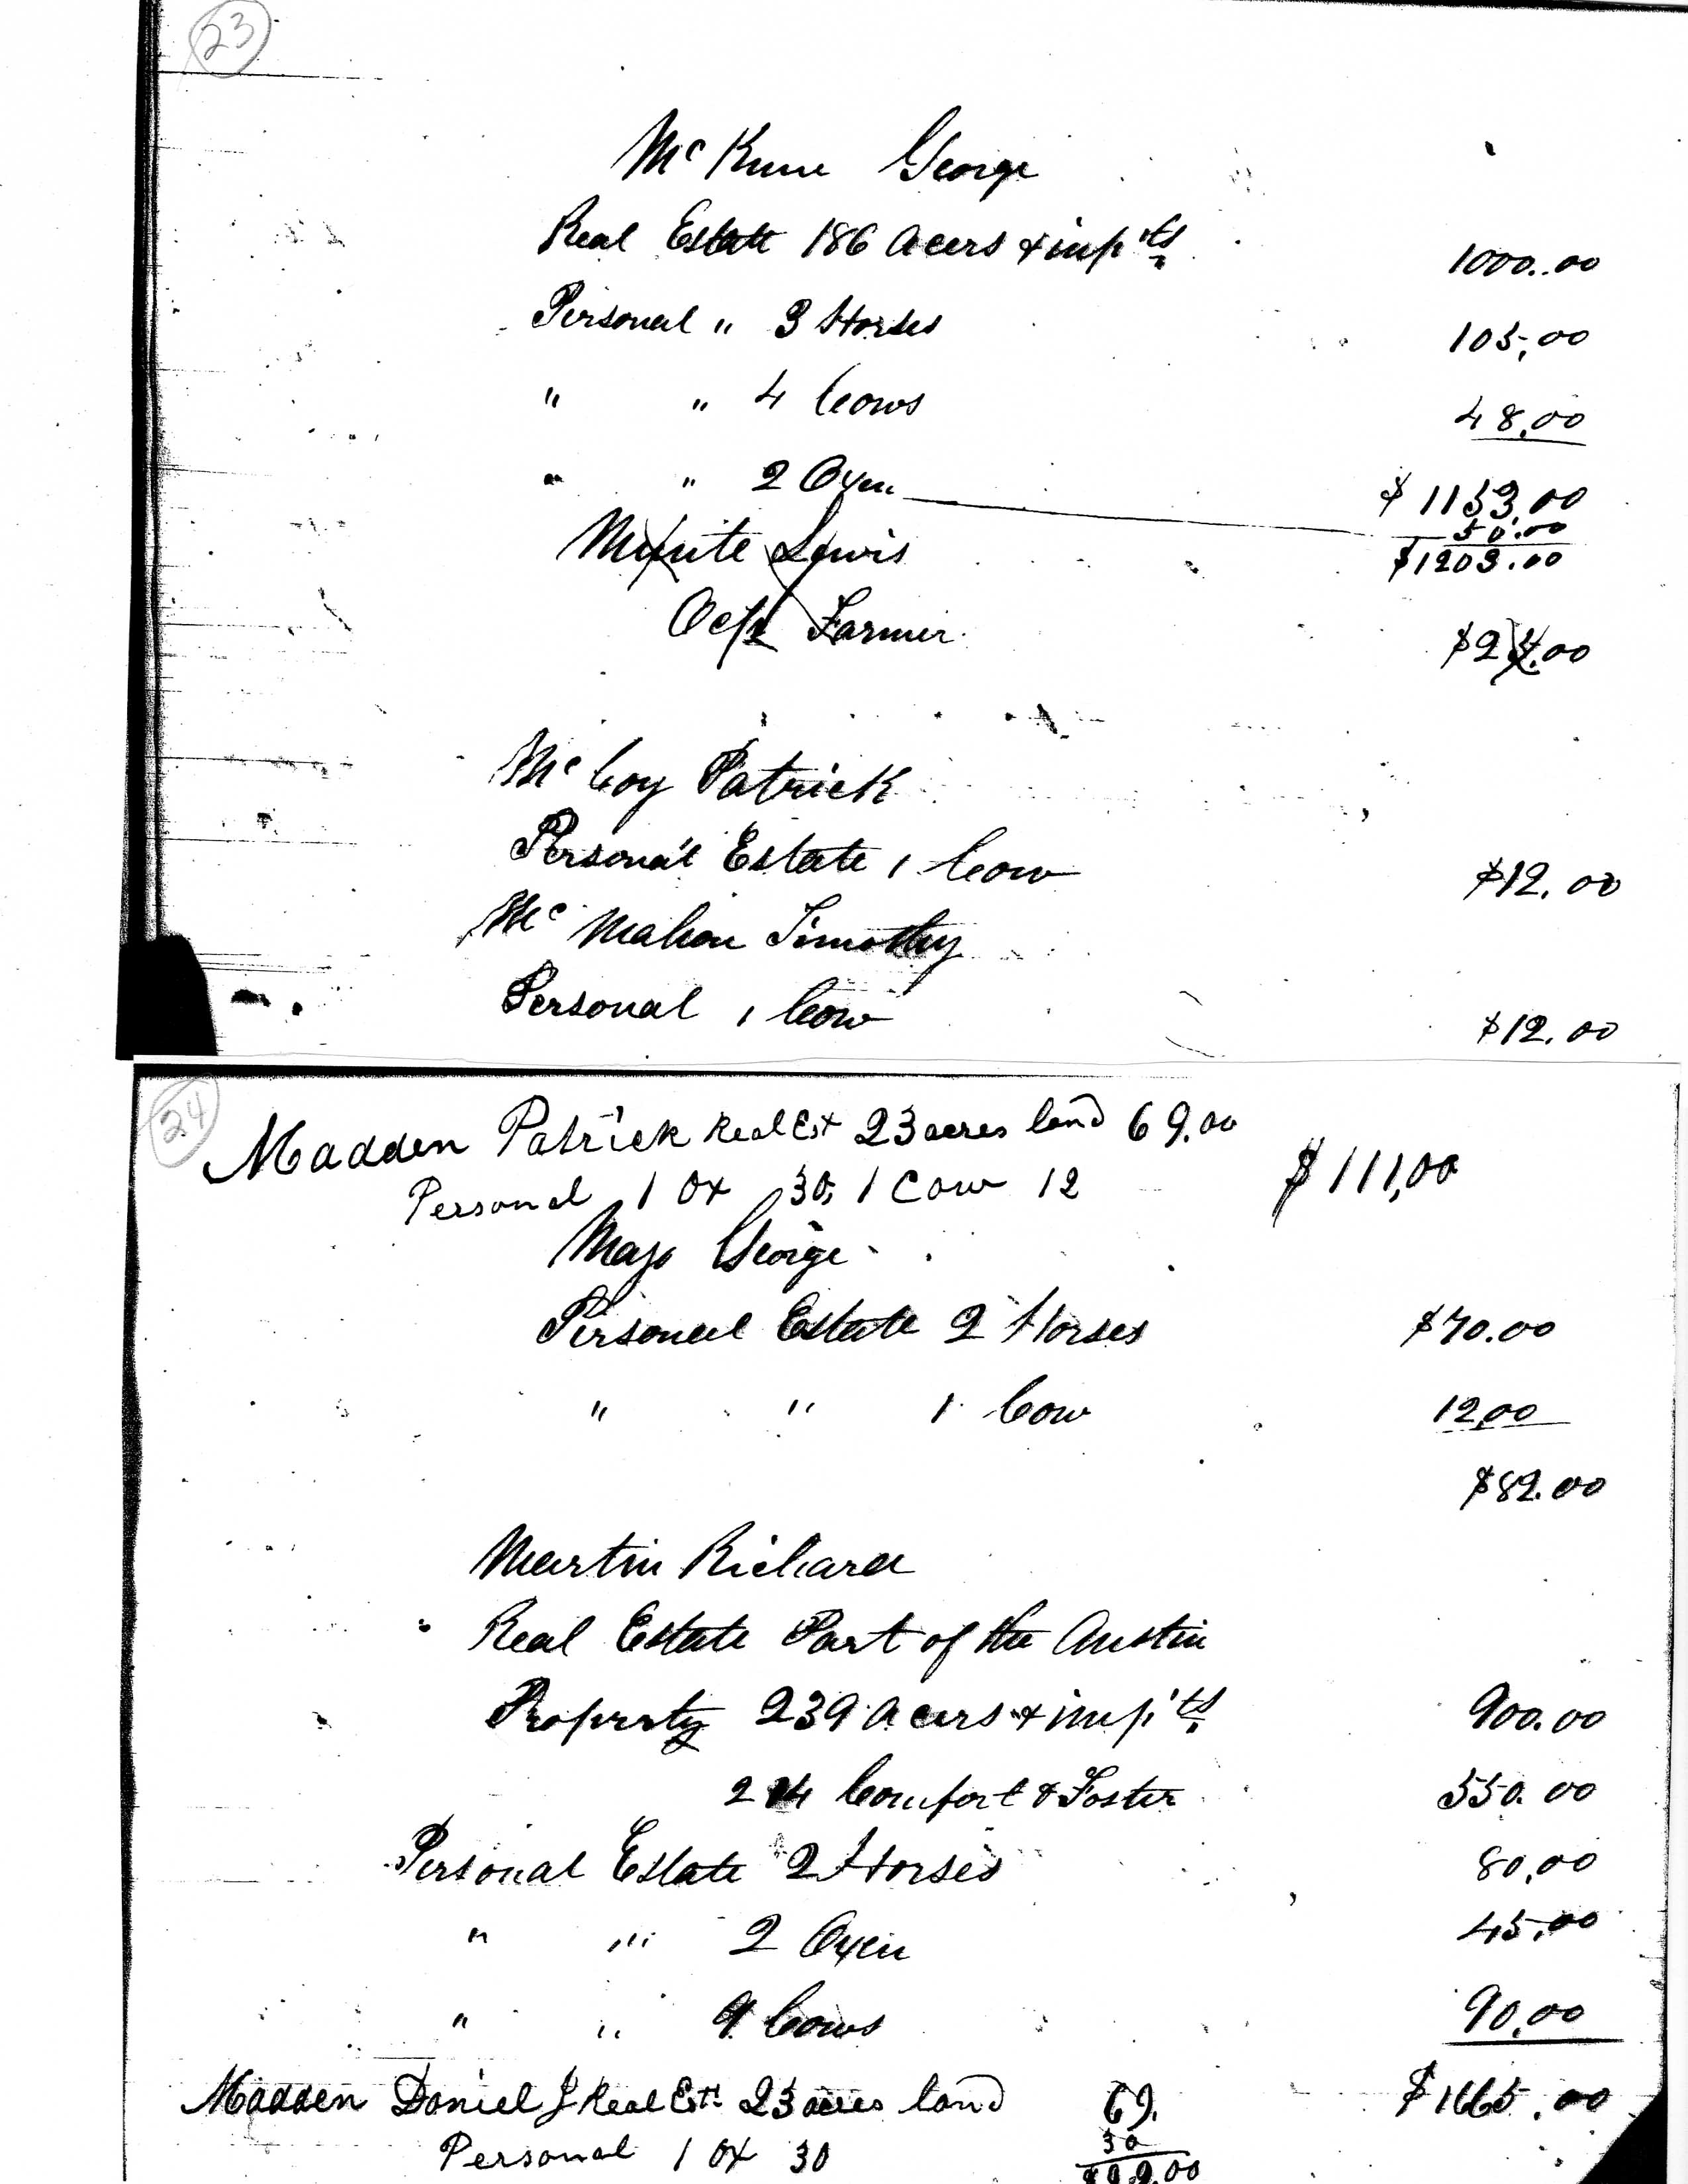 23
Mc Kune George
Real Estate 186 Acers & imp'ts 1000.00
Personal " 3 Horses 105.00
" " 4 Cows 48.00
" " 2 Oxen $1153.00
50.00
Minite Lewis $1203.00
Ocp Farmer $24.00
Mc Coy Patrick
Personal Estate 1 Cow $12.00
Mc Mahon Timothy
Personal 1 Cow $12.00
24
Madden Patrick Real Est 23 acres land 69.00
Personal 1 Ox 30, 1 Cow 12 $111,00
Mayo George
Personal Estate 2 Horses $70.00
" " 1 Cow 12,00
$82.00
Martin Richard
Real Estate Part of the Austin
Property 239 Acers & imp'ts 900.00
214 Comfort & Foster 550.00
Personal Estate 2 Horses 80,00
" " 2 Oxen 45,00
" " 9 Cows 90,00
$1665.00
Madden Daniel J Real Est 23 acres land 69.
Personal 1 Ox 30 30
$99.00